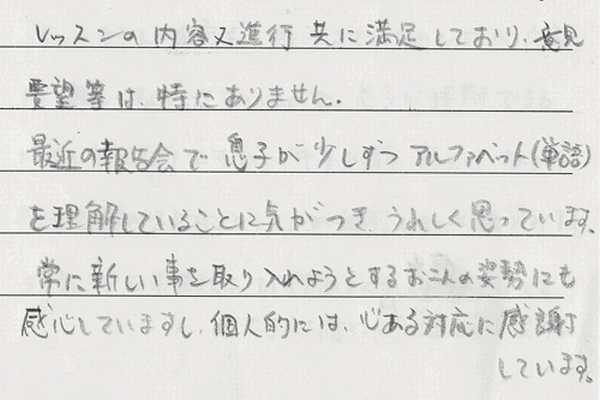 レッスンの内容又進行共に満足しており、意見
要望等は、特にありません。
最近の報告会で息子が少しずつアルファベット(単語)
を理解していることに気がつき、うれしく思っています。
常に新しい事を取り入れようとするお二人の姿勢にも
感心していますし、個人的には、心ある対応に感謝
しています。